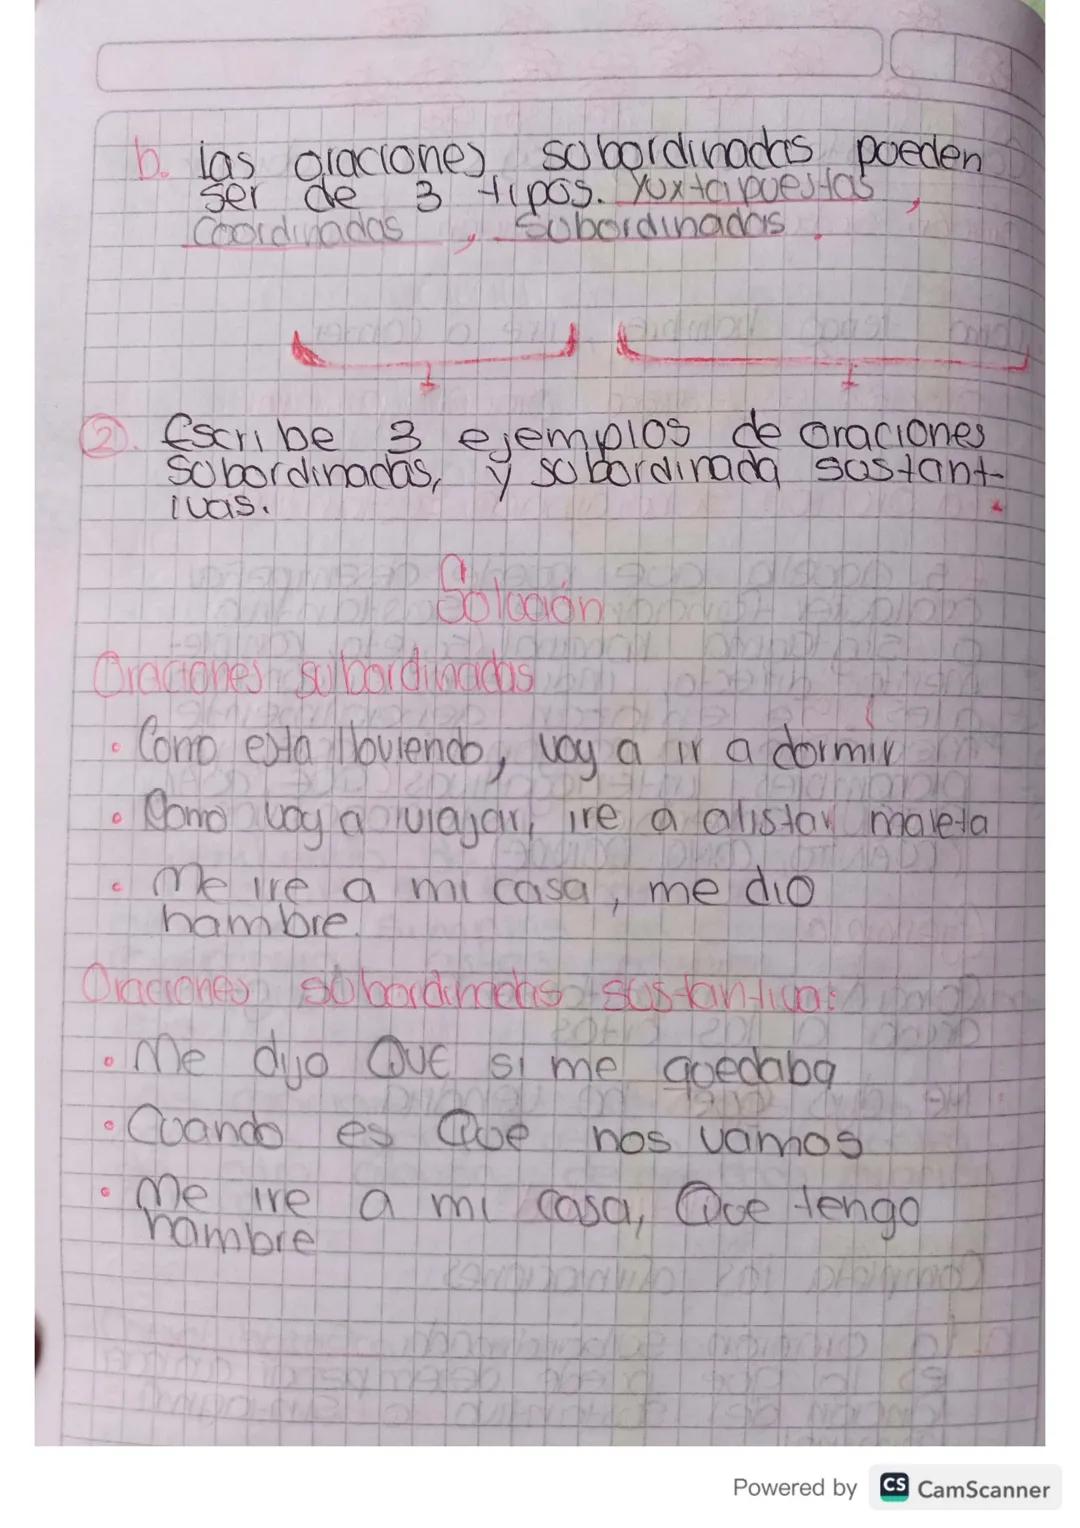 b. las oraciones subordinadas pueden
ser de 3 tipos. Yuxtapuestas,
Coordinadas, Subordinadas.
2. Escribe 3 ejemplos de oraciones
subordinadas, y subordinada sustant-
ivas.
Solución
Oraciones subordinadas
• Como esta lloviendo, voy a ir a dormir
• Como voy a viajar, ire a alistar maleta
• Me ire a mi casa, me dio
hambre.
Oraciones subordinadas sustantiva:
• Me dijo QUE si me quedaba
• Cuando es Que nos vamos
• Me ire a mi casa, Que tengo
hambre
Powered by CS CamScanner